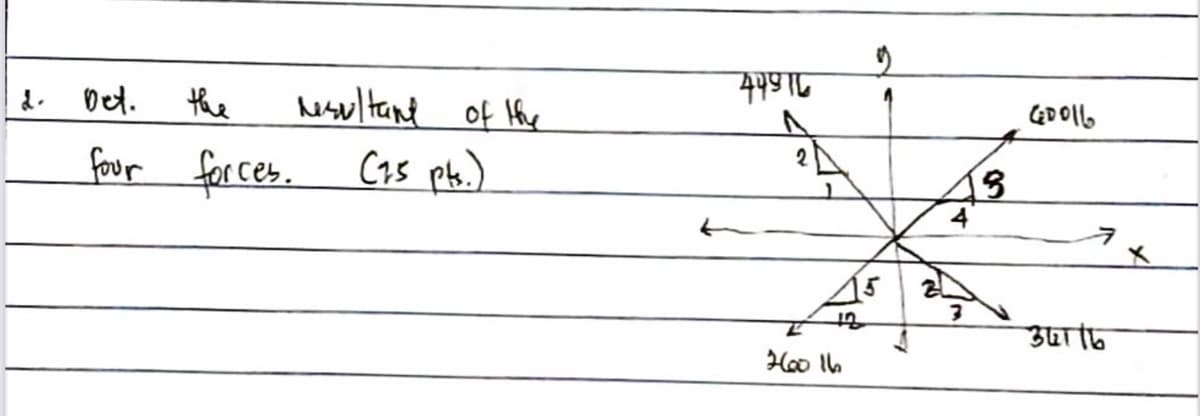 2. Det. the resultant of the
four forces. (25 pts.)
y
449 lb
600 lb
2
1
3
4
x
5
12
2
3
361 lb
260 lb